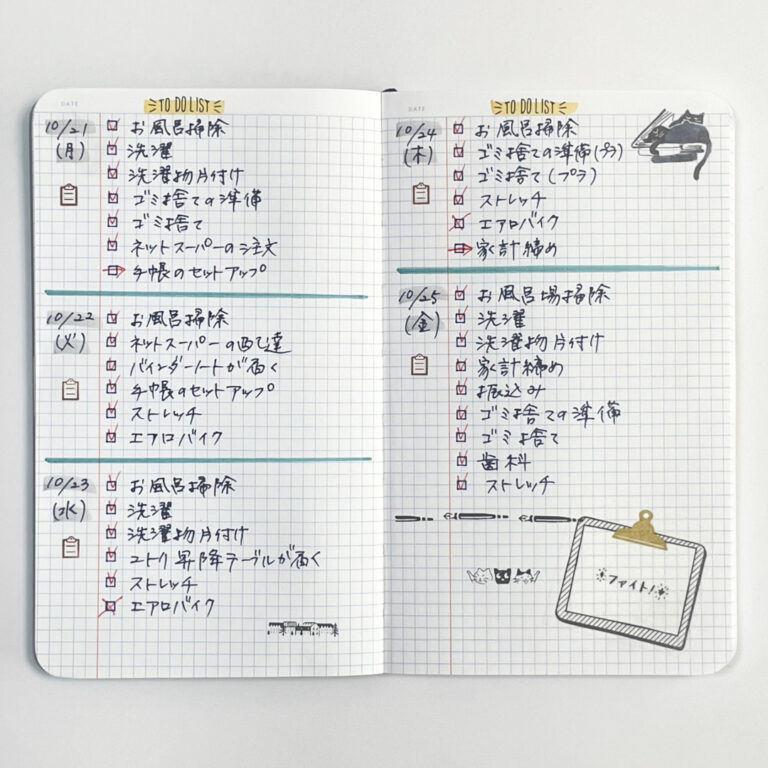 DATE
TO DO LIST
10/21
(月)
お風呂掃除
洗濯
洗濯物片付け
ゴミ捨ての準備
ゴミ捨て
ネットスーパーの注文
手帳のセットアップ
10/22
(火)
お風呂掃除
ネットスーパーの配達
バインダーノートが届く
手帳のセットアップ
ストレッチ
エアロバイク
10/23
(水)
お風呂掃除
洗濯
洗濯物片付け
ニトリ昇降テーブルが届く
ストレッチ
エアロバイク
DATE
TO DO LIST
10/24
(木)
お風呂掃除
ゴミ捨ての準備(プラ)
ゴミ捨て(プラ)
ストレッチ
エアロバイク
家計締め
10/25
(金)
お風呂場掃除
洗濯
洗濯物片付け
家計締め
振込み
ゴミ捨ての準備
ゴミ捨て
歯科
ストレッチ
ファイト!